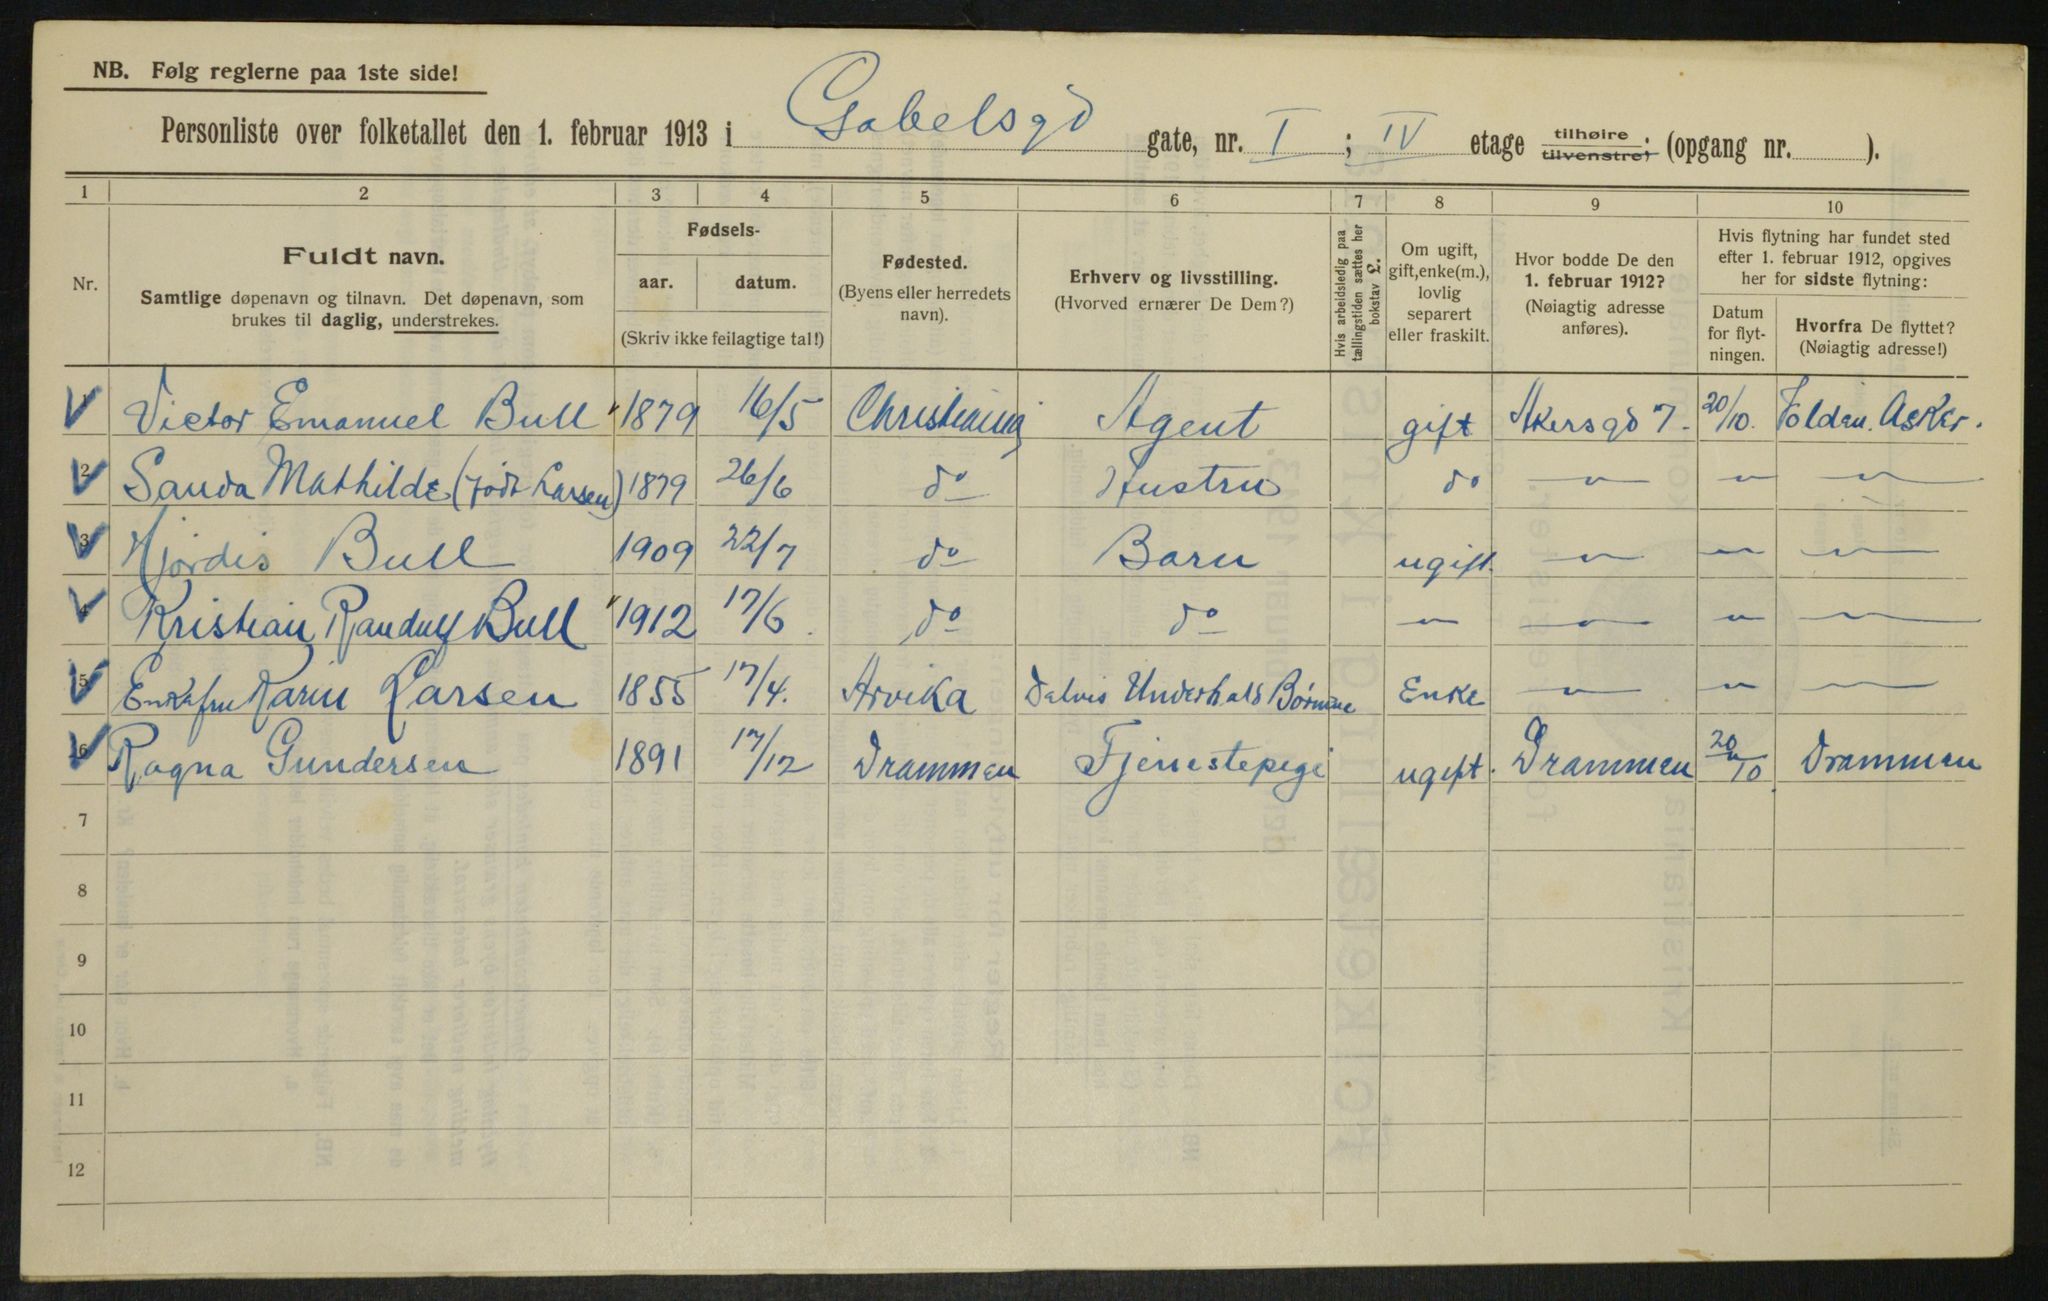 NB. Følg reglerne paa 1ste side!
Personliste over folketallet den 1. februar 1913 i Gabelsgd gate, nr. I ; IV etage tilhøire tilvenstre; (opgang nr. ).
1 2 3 4 5 6 7 8 9 10
Nr.
Fuldt navn.
Samtlige døpenavn og tilnavn. Det døpenavn, som
brukes til daglig, understrekes.
Fødsels-
aar. datum.
(Skriv ikke feilagtige tal!)
Fødested.
(Byens eller herredets
navn).
Erhverv og livsstilling.
(Hvorved ernærer De Dem?)
Hvis arbeidsledig paa
tællingstiden sættes her
bokstav L.
Om ugift,
gift, enke(m.),
lovlig
separert
eller fraskilt.
Hvor bodde De den
1. februar 1912?
(Nøiagtig adresse
anføres).
Hvis flytning har fundet sted
efter 1. februar 1912, opgives
her for sidste flytning:
Datum
for flyt-
ningen.
Hvorfra De flyttet?
(Nøiagtig adresse!)
Victor Emanuel Bull 1879 16/5 Christiania Agent gift Akersgd 7. 20/10. Asker.
2 Mathilde (født Larsen) 1879 26/6 do Hustru do
3 Hjørdis Bull 1909 22/7 do Barn ugift.
4 Kristian Randulf Bull 1912 17/6 do do
5 Enkefru Karin Larsen 1855 17/4. Arvika Delvis Underhold Børnene Enke
6 Ragna Gundersen 1891 17/12 Drammen Tjenestepige ugift. Drammen 20/10 Drammen
7
8
9
10
11
12